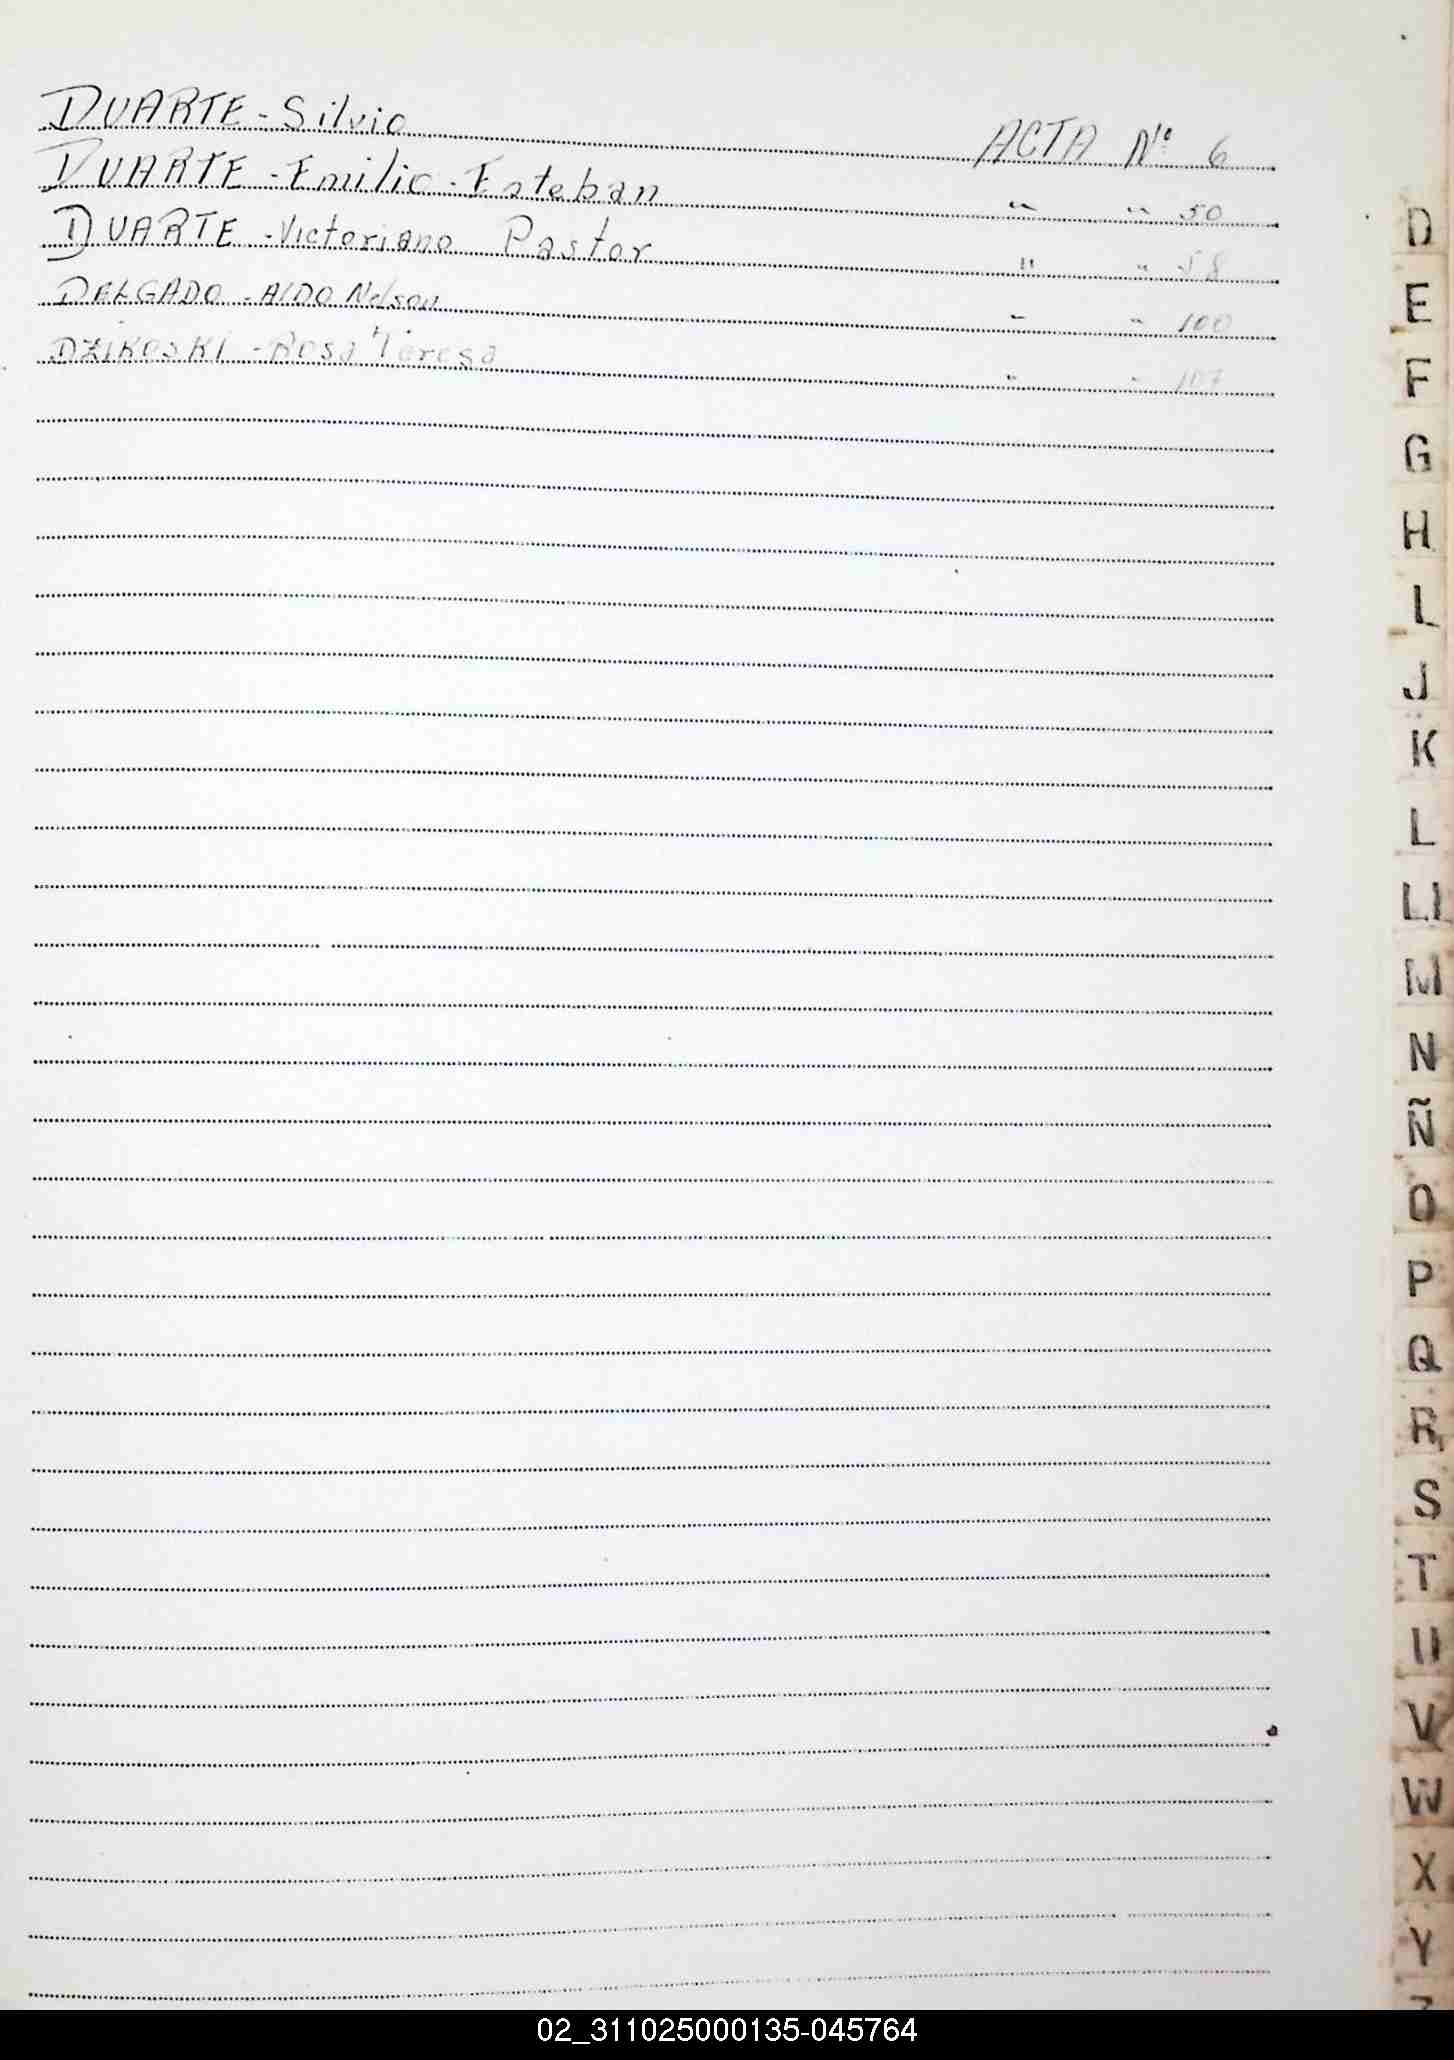 DUARTE - Silvio ACTA Nº 6
DUARTE - Emilio - Esteban " " 50
DUARTE - Victoriano Pastor " " 58
DELGADO - ALDO Nelson " " 100
DZIKOSKI - Rosa Teresa " " 107
D
E
F
G
H
I
J
K
L
Ll
M
N
Ñ
O
P
Q
R
S
T
U
V
W
X
Y
Z
02_311025000135-045764